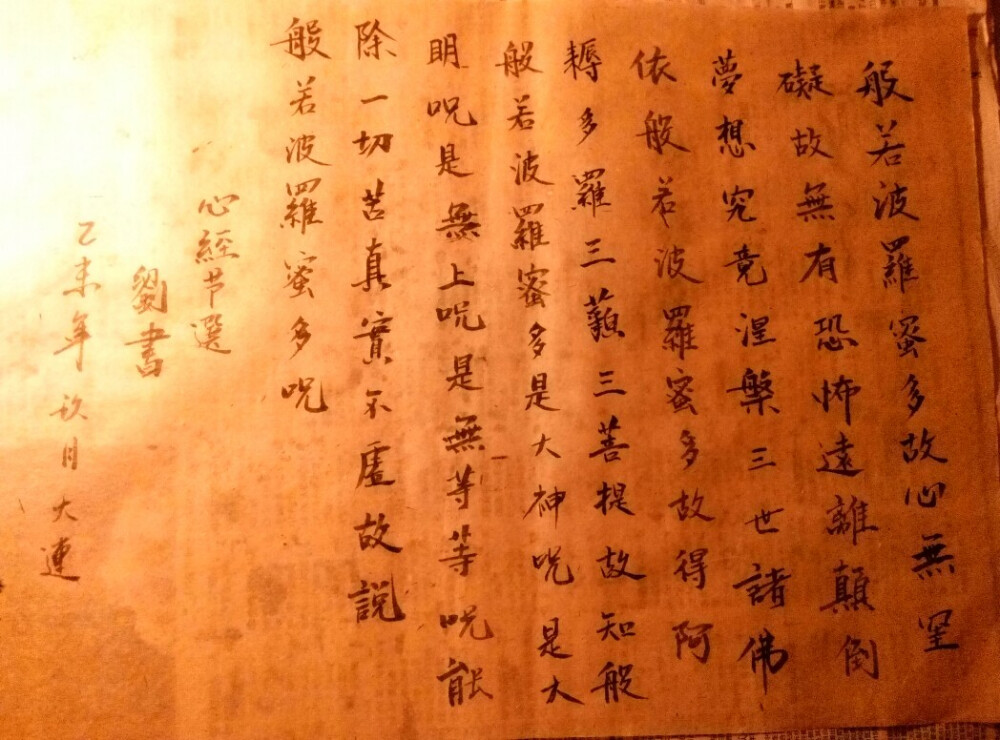 般若波羅蜜多故心無罣
礙故無有恐怖遠離顛倒
夢想究竟涅槃三世諸佛
依般若波羅蜜多故得阿
耨多羅三藐三菩提故知般
般若波羅蜜多是大神呪是大
明呪是無上呪是無等等呪能
除一切苦真實不虛故説
般若波羅蜜多呪
心經节選
劉書
乙未年玖月大連